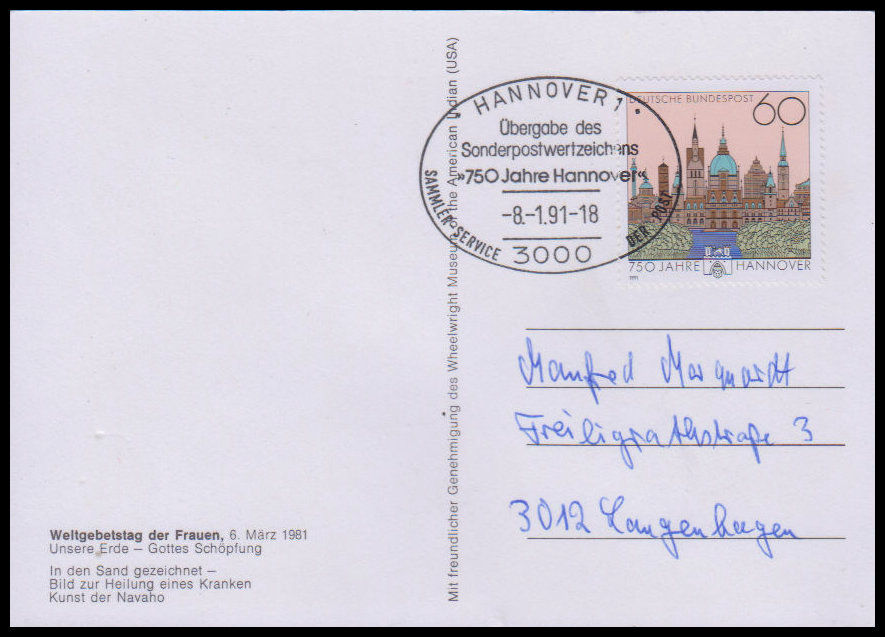 HANNOVER 1
Übergabe des
Sonderpostwertzeichens
»750 Jahre Hannover«
-8.-1.91-18
SAMMLER-SERVICE DER POST
3000
DEUTSCHE BUNDESPOST 60
750 JAHRE HANNOVER
1991
Manfred Marquardt
Freiligrathstraße 3
3012 Langenhagen
Mit freundlicher Genehmigung des Wheelwright Museum of the American Indian (USA)
Weltgebetstag der Frauen, 6. März 1981
Unsere Erde – Gottes Schöpfung
In den Sand gezeichnet –
Bild zur Heilung eines Kranken
Kunst der Navaho